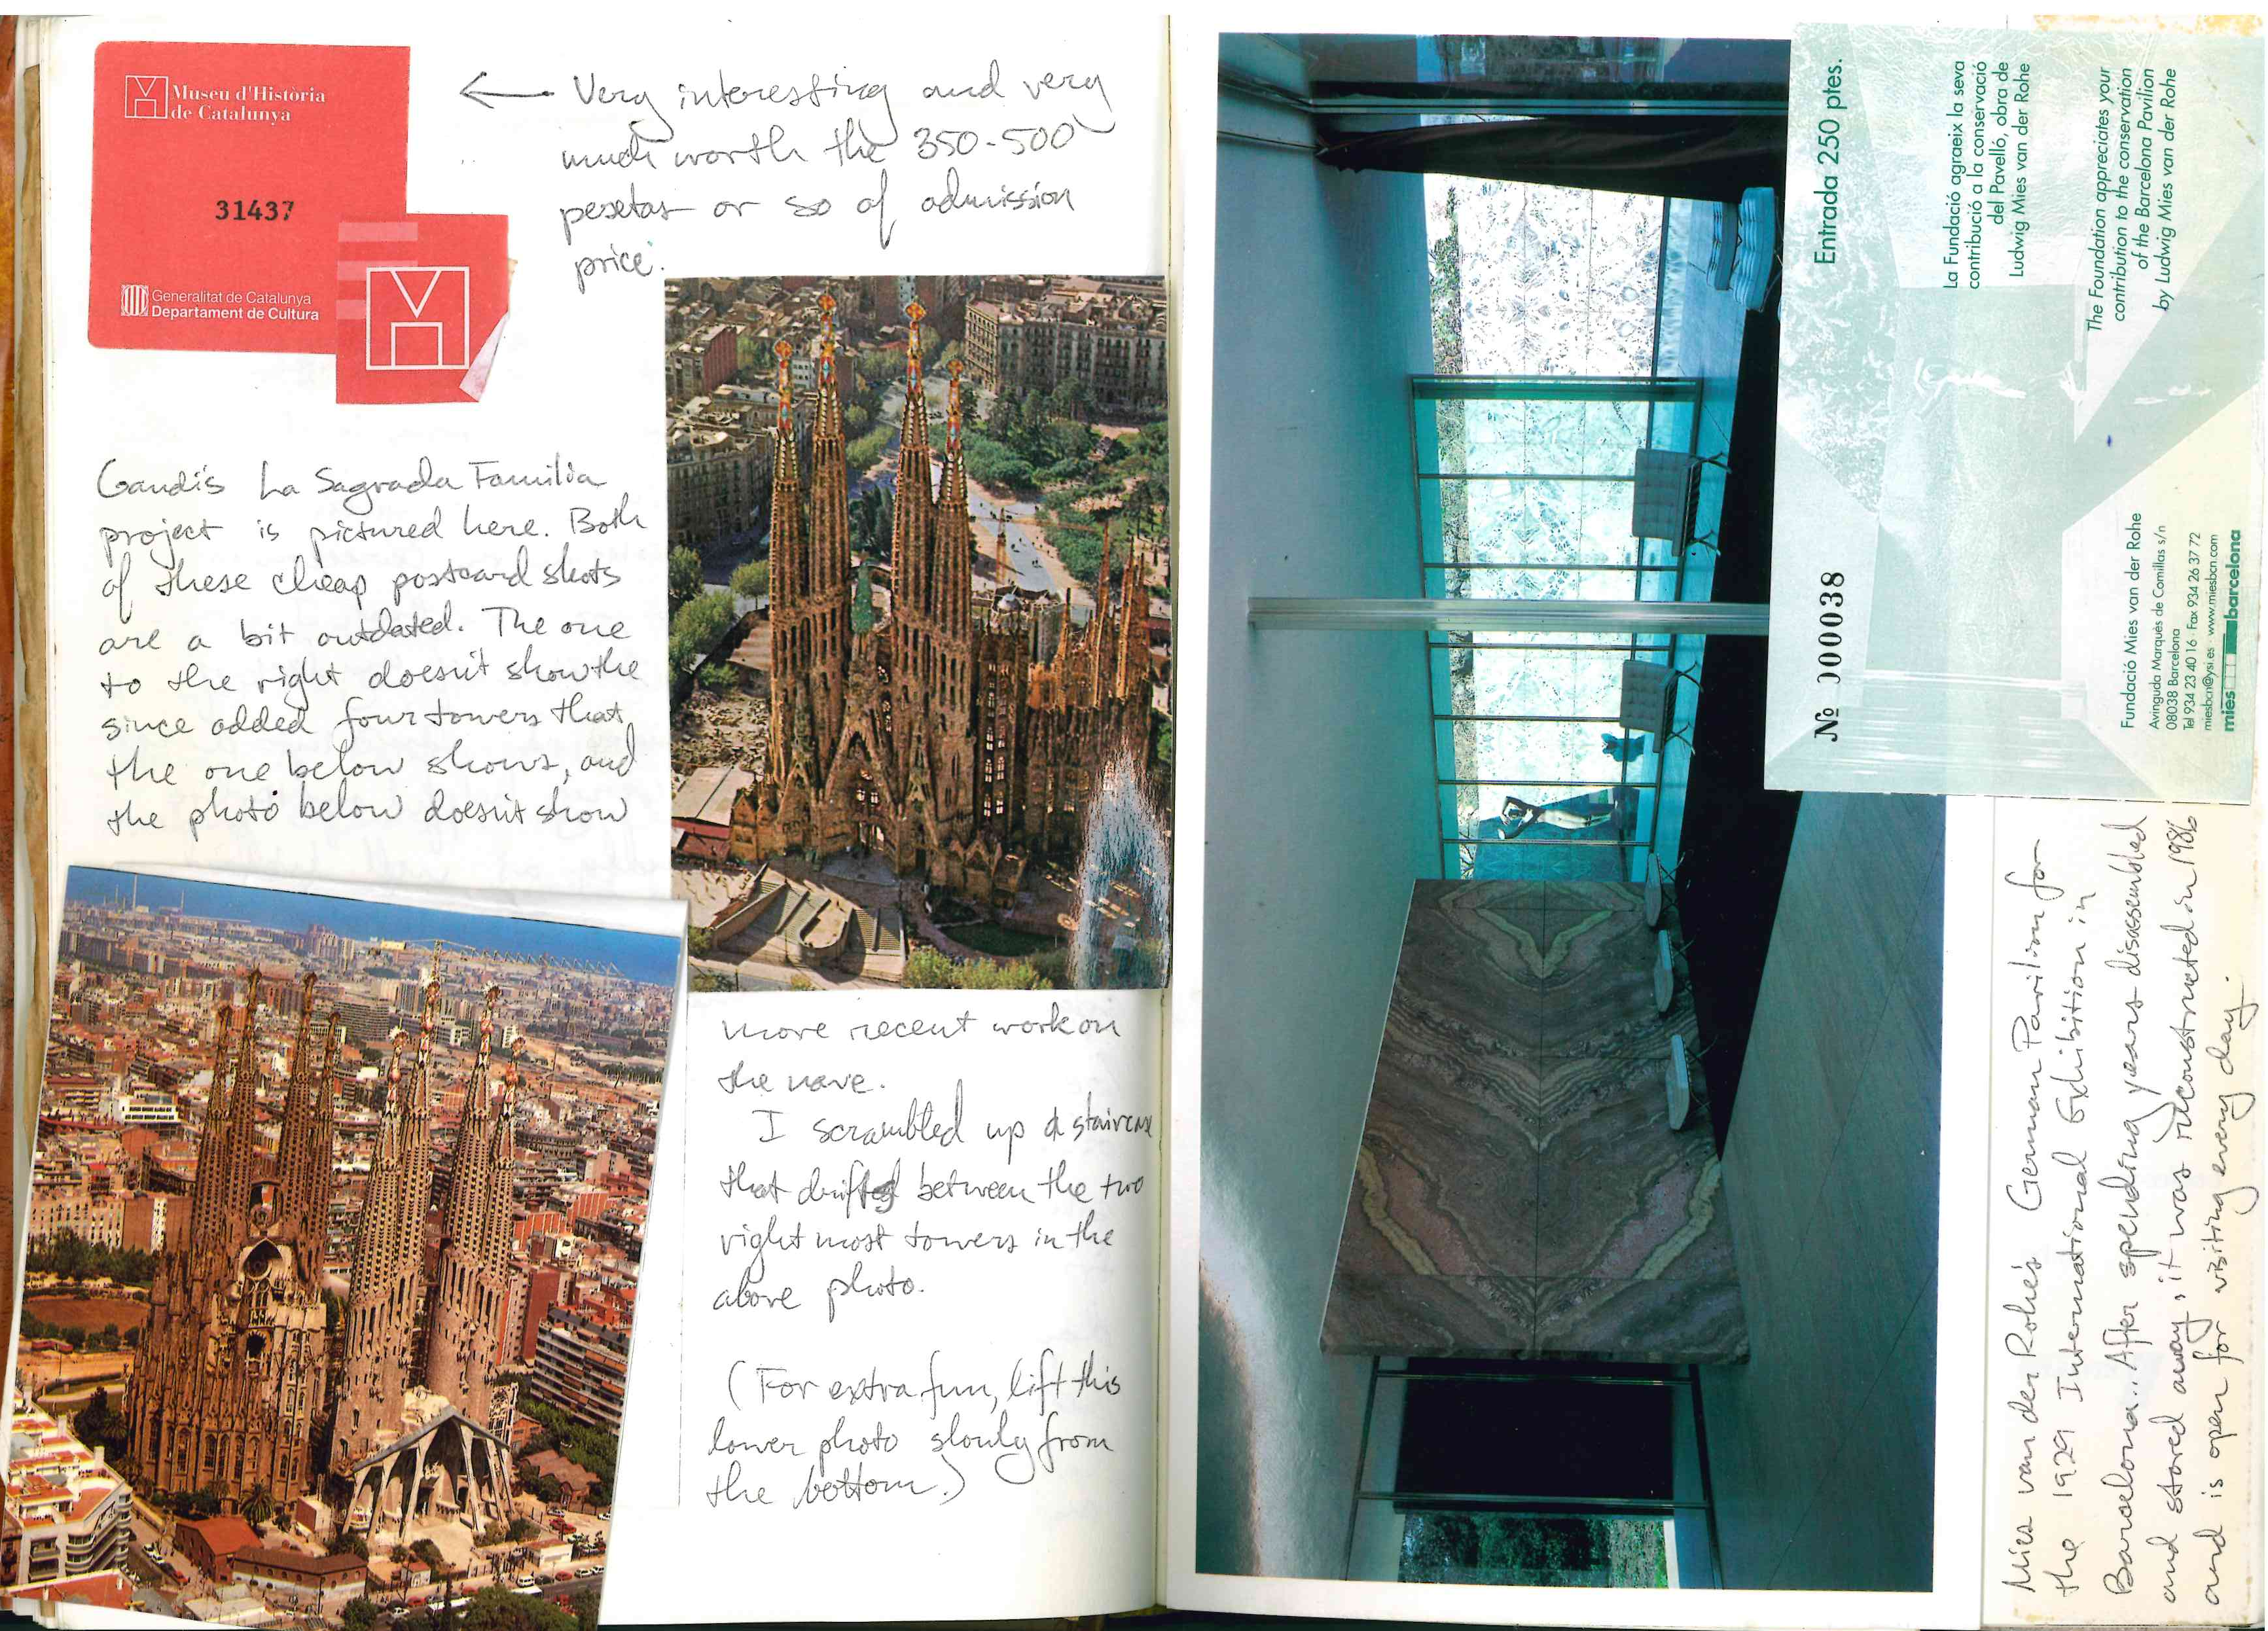 Museu d'Història
de Catalunya
31437
Generalitat de Catalunya
Departament de Cultura
← Very interesting and very
much worth the 350-500
pesetas or so of admission
price.
Gaudi's La Sagrada Familia
project is pictured here. Both
of these cheap postcard shots
are a bit outdated. The one
to the right doesn't show the
since added four towers that
the one below shows, and
the photo below doesn't show
more recent work on
the nave.
I scrambled up a staircase
that drifted between the two
right most towers in the
above photo.
(For extra fun, lift this
lower photo slowly from
the bottom.)
Entrada 250 ptes.
Nº 000038
La Fundació agraeix la seva
contribució a la conservació
del Pavelló, obra de
Ludwig Mies van der Rohe
The Foundation appreciates your
contribution to the conservation
of the Barcelona Pavilion
by Ludwig Mies van der Rohe
Fundació Mies van der Rohe
Avinguda Marquès de Comillas s/n
08038 Barcelona
Tel 934 23 40 16 · Fax 934 26 37 72
miesbcn@ysi.es · www.miesbcn.com
mies barcelona
Mies van der Rohe's German Pavilion for
the 1929 International Exhibition in
Barcelona... After spending years disassembled
and stored away, it was reconstructed in 1986
and is open for visiting every day.